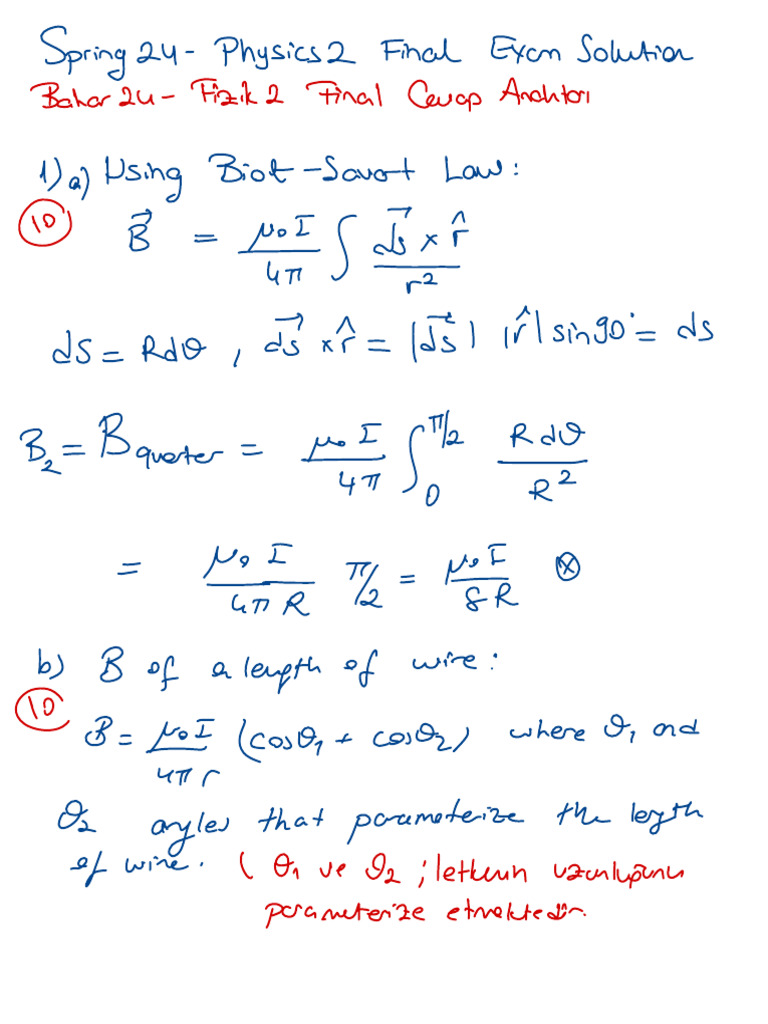 Spring 24 - Physics 2 Final Exam Solution
Bahar 24 - Fizik 2 Final Cevap Anahtarı
1) a) Using Biot-Savart Law:
10
B⃗ = μ₀I/4π ∫ d⃗s × r̂ / r²
ds = Rdθ, d⃗s × r̂ = |d⃗s| |r̂| sin90° = ds
B₂ = B quarter = μ₀I/4π ∫₀^π/2 Rdθ/R²
= μ₀I/4πR π/2 = μ₀I/8R ⊗
b) B of a length of wire:
10
B = μ₀I/4πr (cosθ₁ + cosθ₂) where θ₁ and
θ₂ angles that parameterize the length
of wire. (θ₁ ve θ₂; iletkenin uzunluğunu
parameterize etmektedir.